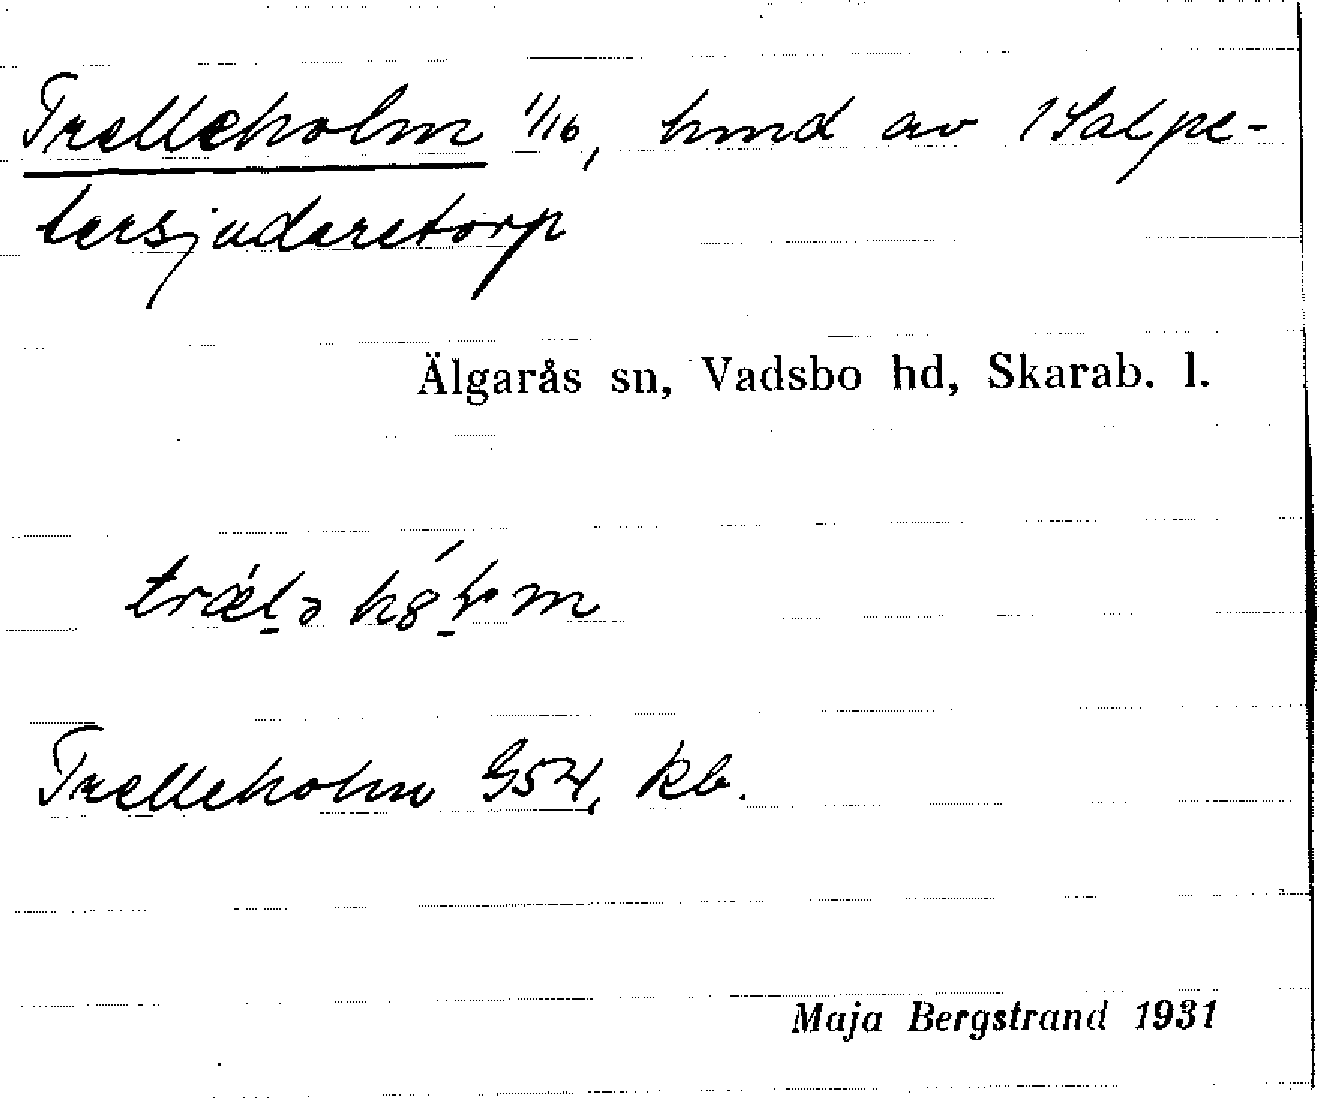 Trelleholm 1/16, hmd av 1 Salpe-
tersjudaretorp
Älgarås sn, Vadsbo hd, Skarab. l.
Trelleholm G54, kb.
Maja Bergstrand 1931